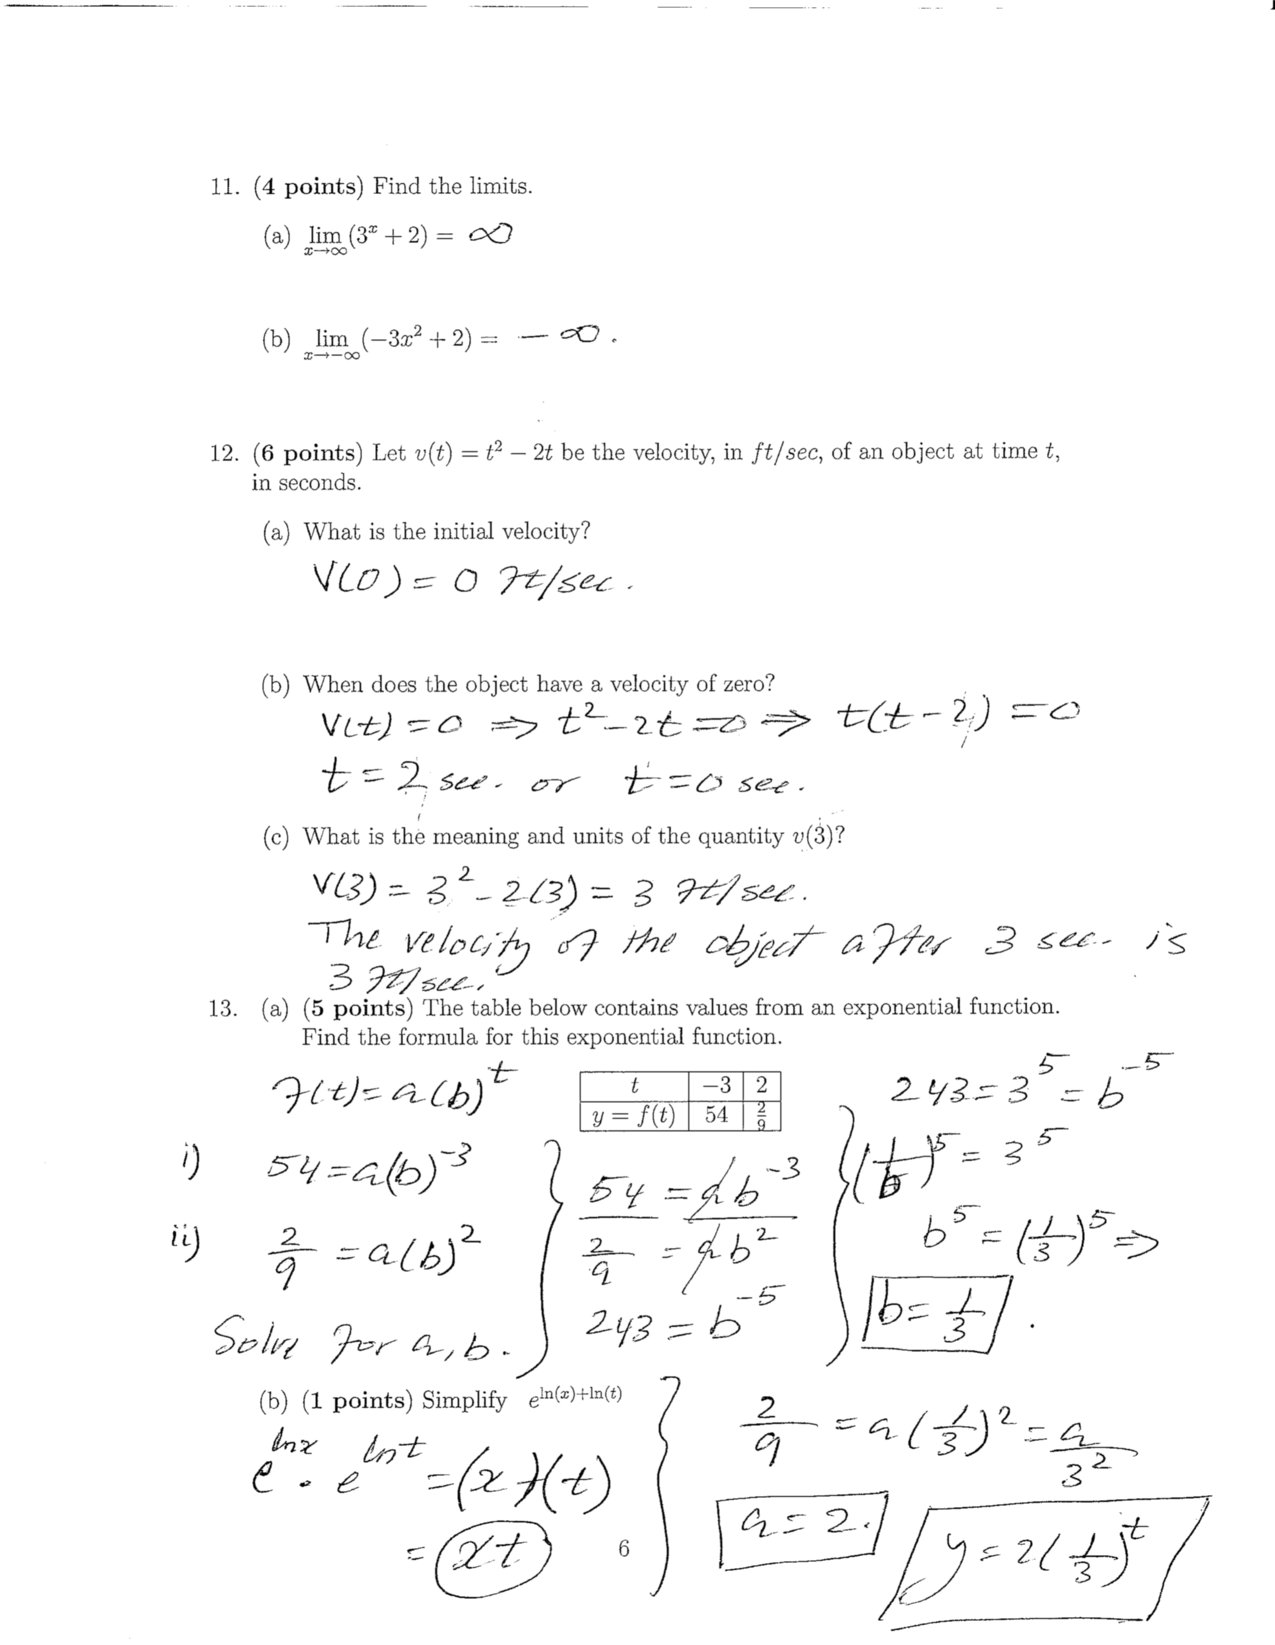 11. (4 points) Find the limits.
(a) lim x→∞ (3^x + 2) = ∞
(b) lim x→−∞ (−3x² + 2) = − ∞.
12. (6 points) Let v(t) = t² − 2t be the velocity, in ft/sec, of an object at time t,
in seconds.
(a) What is the initial velocity?
V(0) = 0 ft/sec.
(b) When does the object have a velocity of zero?
V(t) = 0 ⇒ t² − 2t = 0 ⇒ t(t − 2) = 0
t = 2 sec. or t = 0 sec.
(c) What is the meaning and units of the quantity v(3)?
V(3) = 3² − 2(3) = 3 ft/sec.
The velocity of the object after 3 sec. is
3 ft/sec.
13. (a) (5 points) The table below contains values from an exponential function.
Find the formula for this exponential function.
f(t) = a(b)^t
t −3 2
y = f(t) 54 2/9
i) 54 = a(b)^−3
ii) 2/9 = a(b)²
Solve for a, b.
54 = a b^−3
2/9 = a b²
243 = b^−5
243 = 3^5 = b^−5
(1/b)^5 = 3^5
b^5 = (1/3)^5 ⇒
b = 1/3.
(b) (1 points) Simplify e^ln(x)+ln(t)
e^lnx · e^lnt = (x)(t)
= xt
2/9 = a(1/3)² = a/3²
a = 2.
y = 2(1/3)^t
6